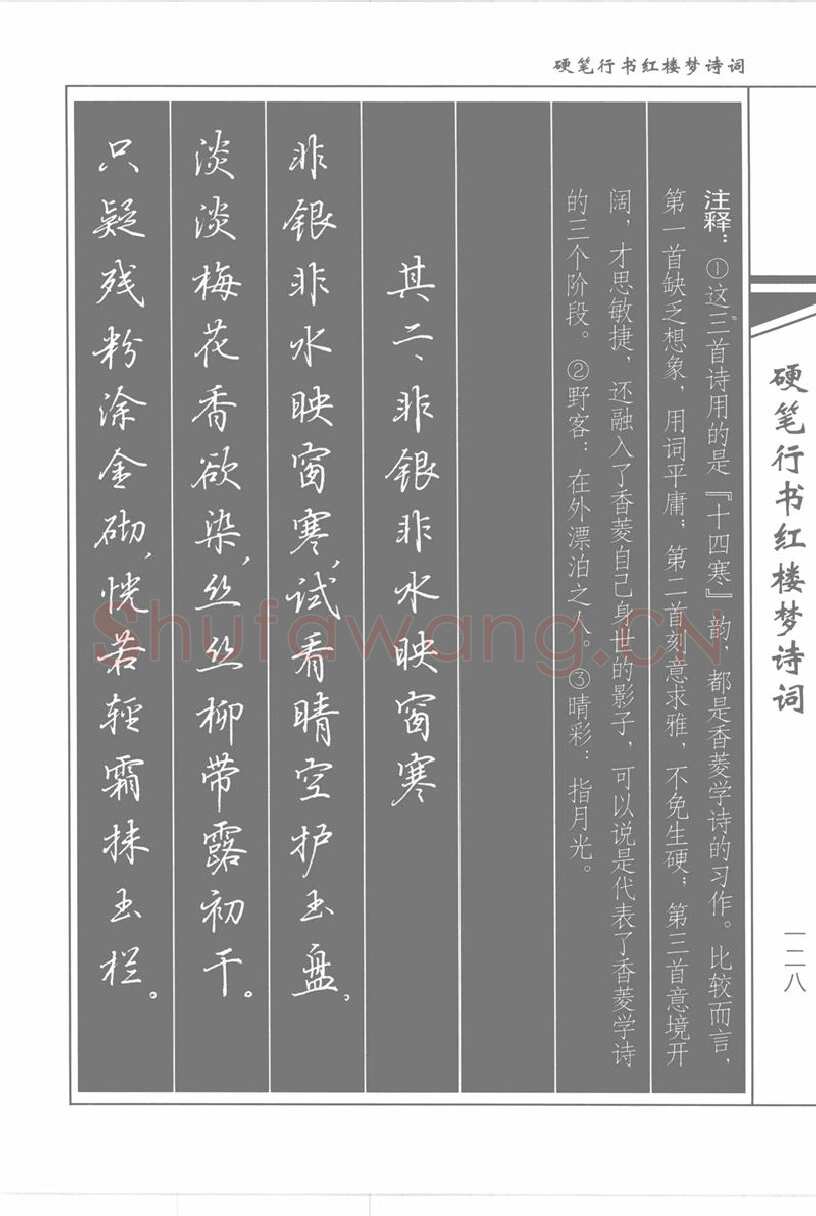 硬笔行书红楼梦诗词
注释：①这三首诗用的是『十四寒』韵，都是香菱学诗的习作。比较而言，
第一首缺乏想象，用词平庸；第二首刻意求雅，不免生硬；第三首意境开
阔，才思敏捷，还融入了香菱自己身世的影子，可以说是代表了香菱学诗
的三个阶段。②野客：在外漂泊之人。③晴彩：指月光。
其二、非银非水映窗寒
非银非水映窗寒，试看晴空护玉盘，
淡淡梅花香欲染，丝丝柳带露初干。
只疑残粉涂金砌，恍若轻霜抹玉栏。
硬笔行书红楼梦诗词
一二八
Shufawang.CN